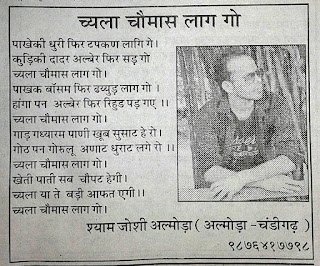 च्यला चौमास लाग गो
पाखेकी धुरी फिर टपकण लागि गे।
कुड़िकी दादर अल्बेर फिर सड़ गो
च्यला चौमास लाग गो।
पाखक बाँसम फिर ढय्युड़ लाग गो ।
हांगा पन अल्बेर फिर रिहुड पड़ गए ।।
च्यला चौमास लाग गो।
गाड़ गध्यारम पाणी खूब सुसाट हे रो।
गोठ पन गोरुलू अणाट धुराट लगै रो ।।
च्यला चौमास लाग गो।
खेती पाती सब चौपट हेगी।
च्यला या ते बड़ी आफत एगी।।
च्यला चौमास लाग गो।
श्याम जोशी अल्मोड़ा ( अल्मोड़ा -चंडीगढ़ )
९८७६४१७७९८